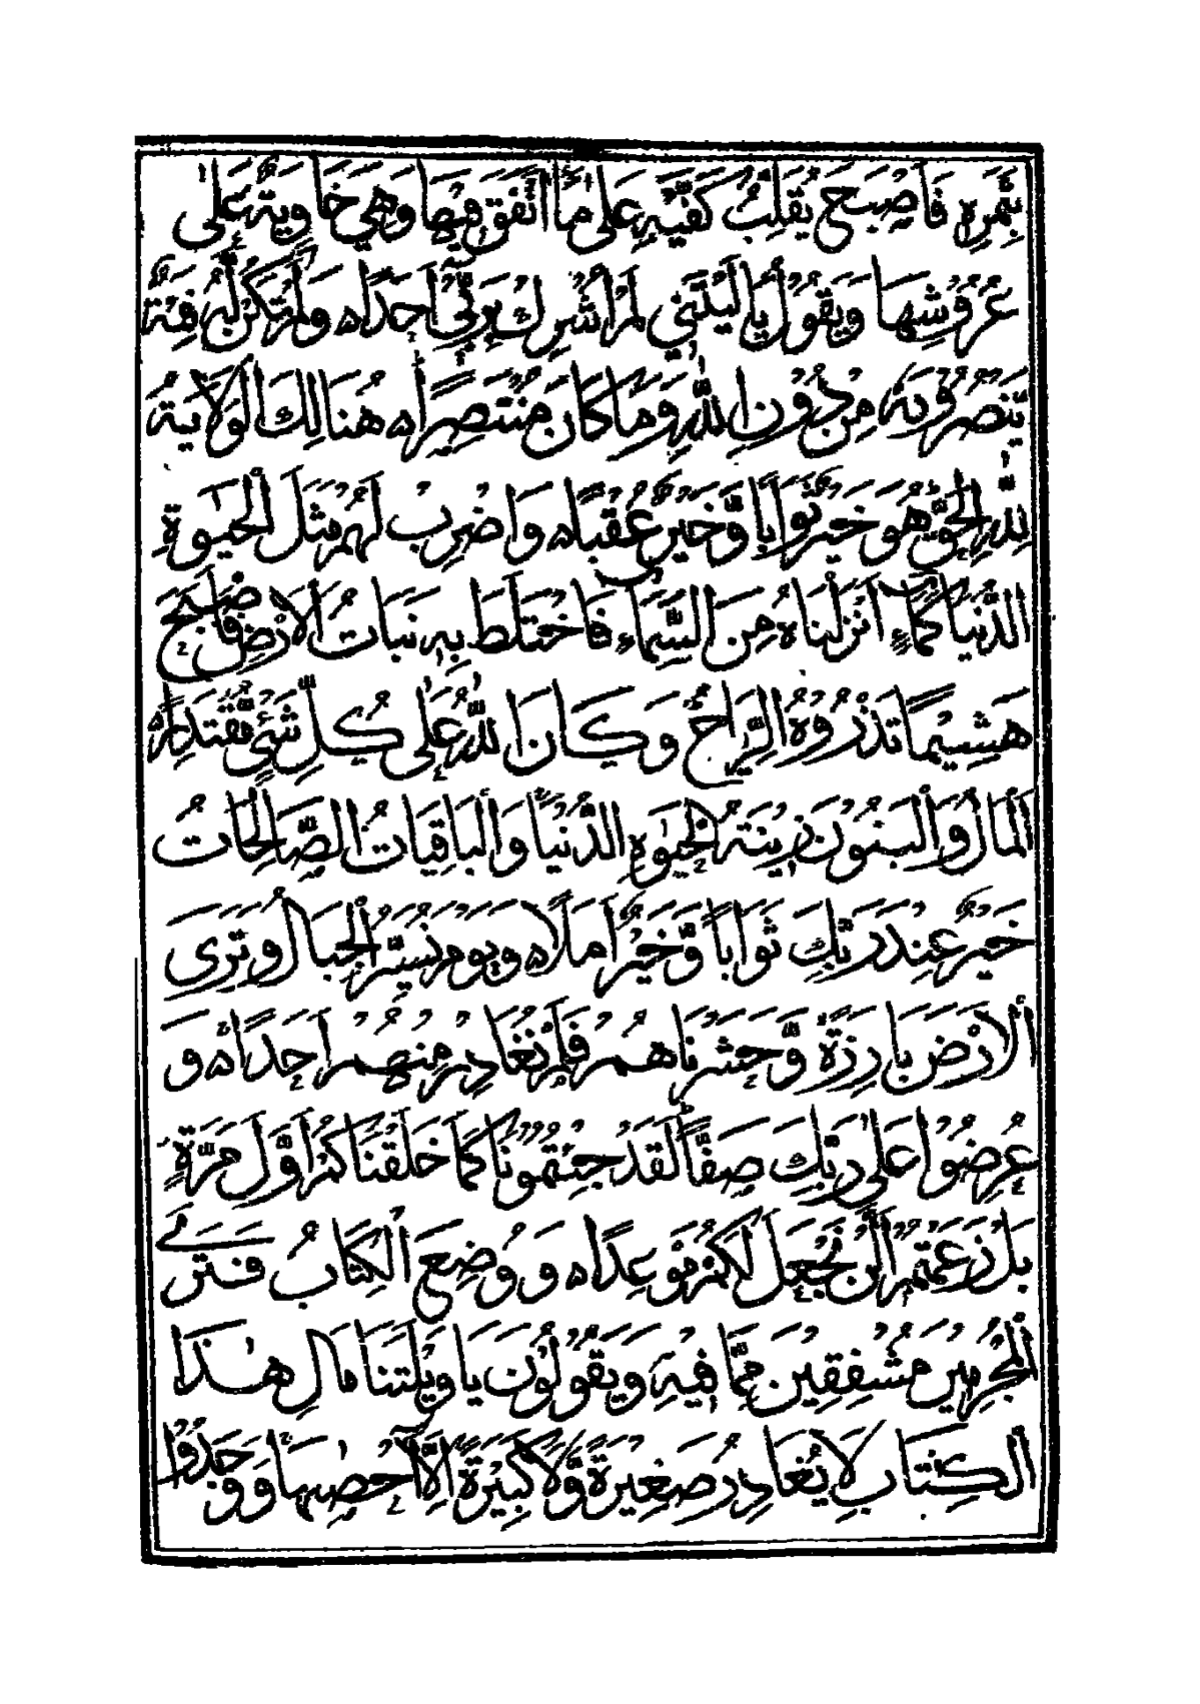 بِثَمَرِهٖ فَاَصْبَحَ يُقَلِّبُ كَفَّيْهِ عَلٰى مَا اَنْفَقَ فِيْهَا وَهِيَ خَاوِيَةٌ عَلٰى
عُرُوْشِهَا وَيَقُوْلُ يَا لَيْتَنِيْ لَمْ اُشْرِكْ بِرَبِّيْ اَحَدًا ه وَلَمْ تَكُنْ لَهُ فِئَةٌ
يَنْصُرُوْنَهُ مِنْ دُوْنِ اللّٰهِ وَمَا كَانَ مُنْتَصِرًا ه هُنَالِكَ الْوَلَايَةُ
لِلّٰهِ الْحَقِّ هُوَ خَيْرٌ ثَوَابًا وَّخَيْرٌ عُقْبًا ه وَاضْرِبْ لَهُمْ مَثَلَ الْحَيٰوةِ
الدُّنْيَا كَمَاءٍ اَنْزَلْنَاهُ مِنَ السَّمَاءِ فَاخْتَلَطَ بِهٖ نَبَاتُ الْاَرْضِ فَاَصْبَحَ
هَشِيْمًا تَذْرُوْهُ الرِّيَاحُ وَكَانَ اللّٰهُ عَلٰى كُلِّ شَيْءٍ مُّقْتَدِرًا ه
اَلْمَالُ وَالْبَنُوْنَ زِيْنَةُ الْحَيٰوةِ الدُّنْيَا وَالْبَاقِيَاتُ الصَّالِحَاتُ
خَيْرٌ عِنْدَ رَبِّكَ ثَوَابًا وَّخَيْرٌ اَمَلًا ه وَيَوْمَ نُسَيِّرُ الْجِبَالَ وَتَرَى
الْاَرْضَ بَارِزَةً وَّحَشَرْنَاهُمْ فَلَمْ نُغَادِرْ مِنْهُمْ اَحَدًا ه وَ
عُرِضُوْا عَلٰى رَبِّكَ صَفًّا لَقَدْ جِئْتُمُوْنَا كَمَا خَلَقْنَاكُمْ اَوَّلَ مَرَّةٍ
بَلْ زَعَمْتُمْ اَلَّنْ نَجْعَلَ لَكُمْ مَوْعِدًا ه وَوُضِعَ الْكِتَابُ فَتَرَى
الْمُجْرِمِيْنَ مُشْفِقِيْنَ مِمَّا فِيْهِ وَيَقُوْلُوْنَ يَا وَيْلَتَنَا مَالِ هٰذَا
الْكِتَابِ لَا يُغَادِرُ صَغِيْرَةً وَّلَا كَبِيْرَةً اِلَّا اَحْصٰهَا وَوَجَدُوْا